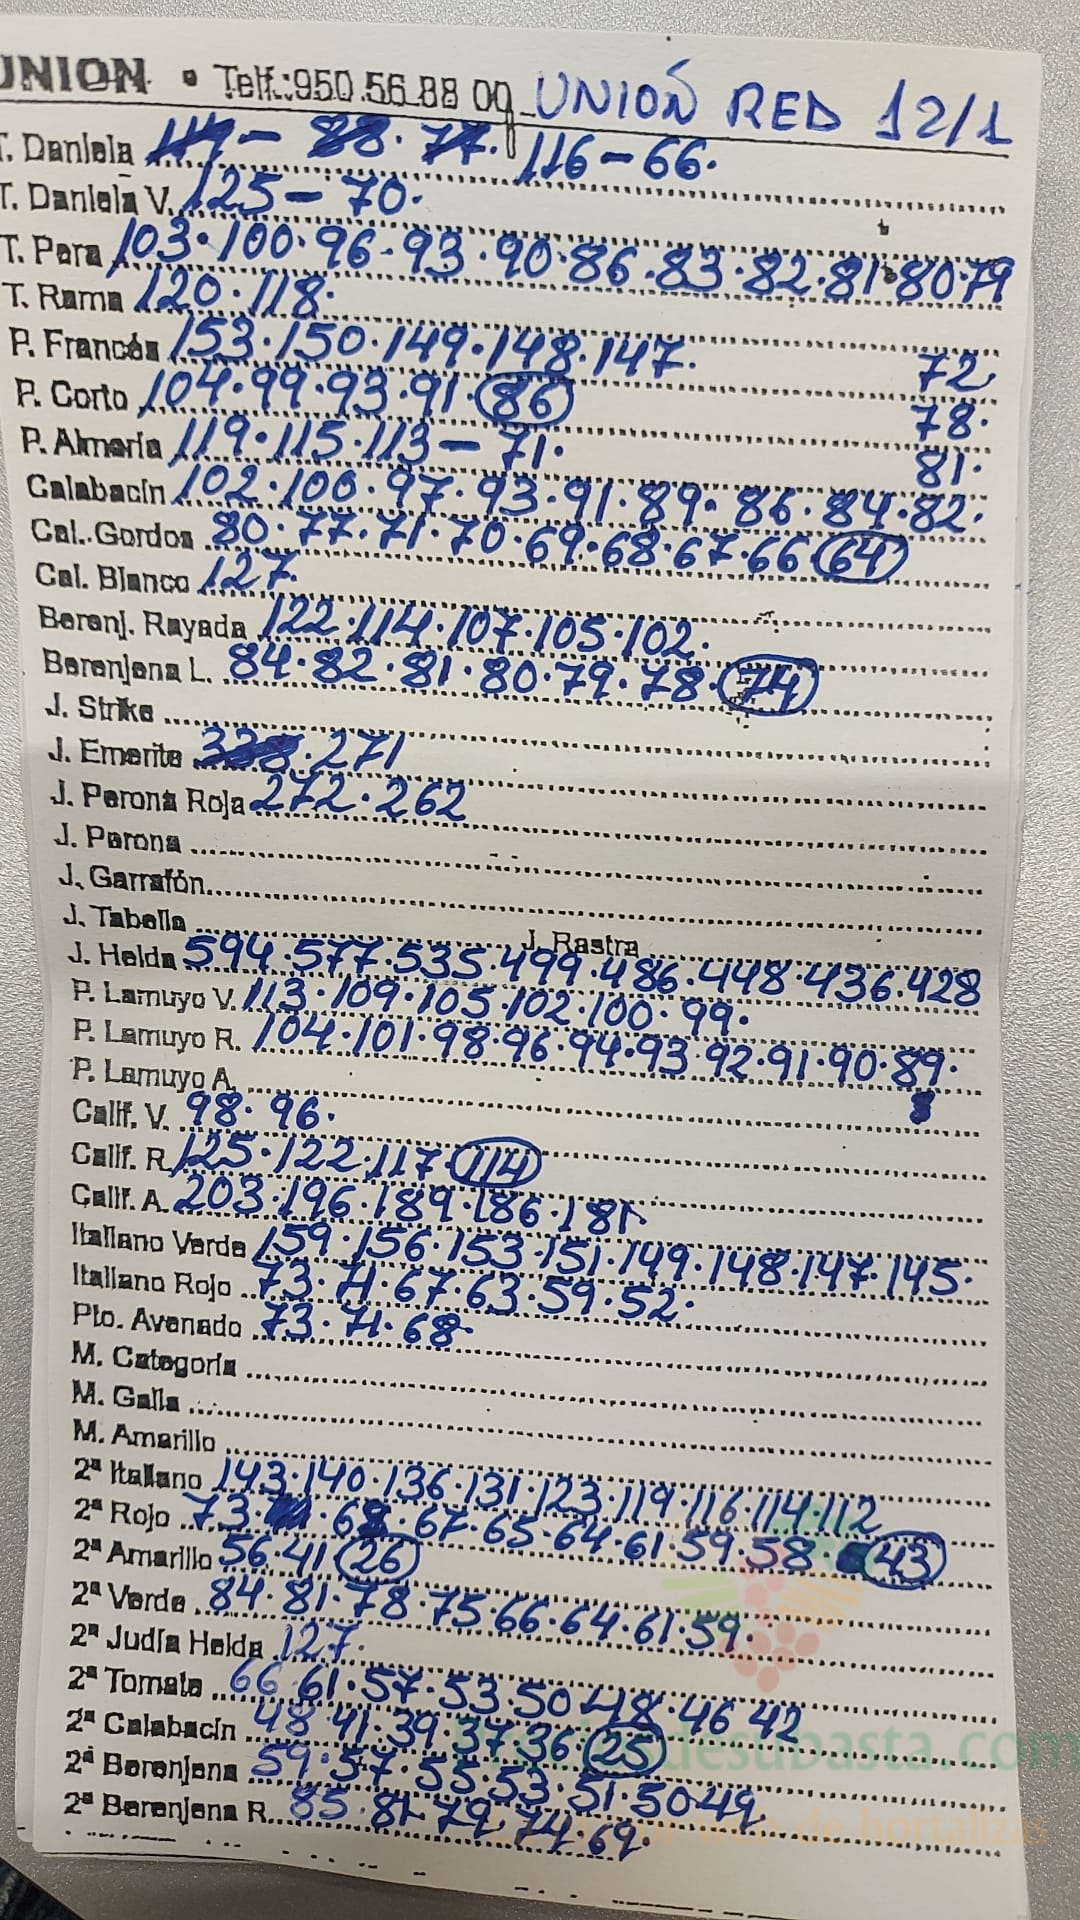 UNION • Telf.:950.56.88 00 UNIÓN RED 12/1
T. Daniela 88. 77. 116-66.
T. Daniela V. 125-70.
T. Pera 103.100.96-93.90.86.83.82.81.80.79
T. Rama 120.118.
P. Francés 153.150.149.148.147. 72.
P. Corto 104.99.93.91.86 78.
P. Almería 119.115.113-71. 81.
Calabacín 102.100.97.93.91.89.86.84.82.
Cal. Gordos 80.77.71.70.69.68.67.66 64
Cal. Blanco 127.
Berenj. Rayada 122.114.107.105.102.
Berenjena L. 84.82.81.80.79.78.74
J. Strike
J. Emerite 271
J. Perona Roja 272.262
J. Perona
J. Garrafón
J. Tabella J. Rastra
J. Helda 594.577.535.499.486.448.436.428
P. Lamuyo V. 113.109.105.102.100.99.
P. Lamuyo R. 104.101.98.96.94.93 92.91.90.89.
P. Lamuyo A.
Calif. V. 98.96.
Calif. R. 125.122.117.114
Calif. A. 203.196.189.186.181
Italiano Verde 159.156.153.151.149.148.147.145.
Italiano Rojo 73.71.67.63.59.52.
Pto. Avenado 73.71.68
M. Categoría
M. Galia
M. Amarillo
2ª Italiano 143.140.136.131.123.119.116.114.112
2ª Rojo 73. 68.67.65.64.61.59.58 43
2ª Amarillo 56.41 26
2ª Verde 84.81.78.75.66.64.61.59.
2ª Judía Helda 127.
2ª Tomate 66 61.57.53.50 48.46 42
2ª Calabacín 48 41.39.37 36.25
2ª Berenjena 59.57.55.53.51.50 49.
2ª Berenjena R. 85.81 79.74.69.
desubasta.com
web de hortalizas